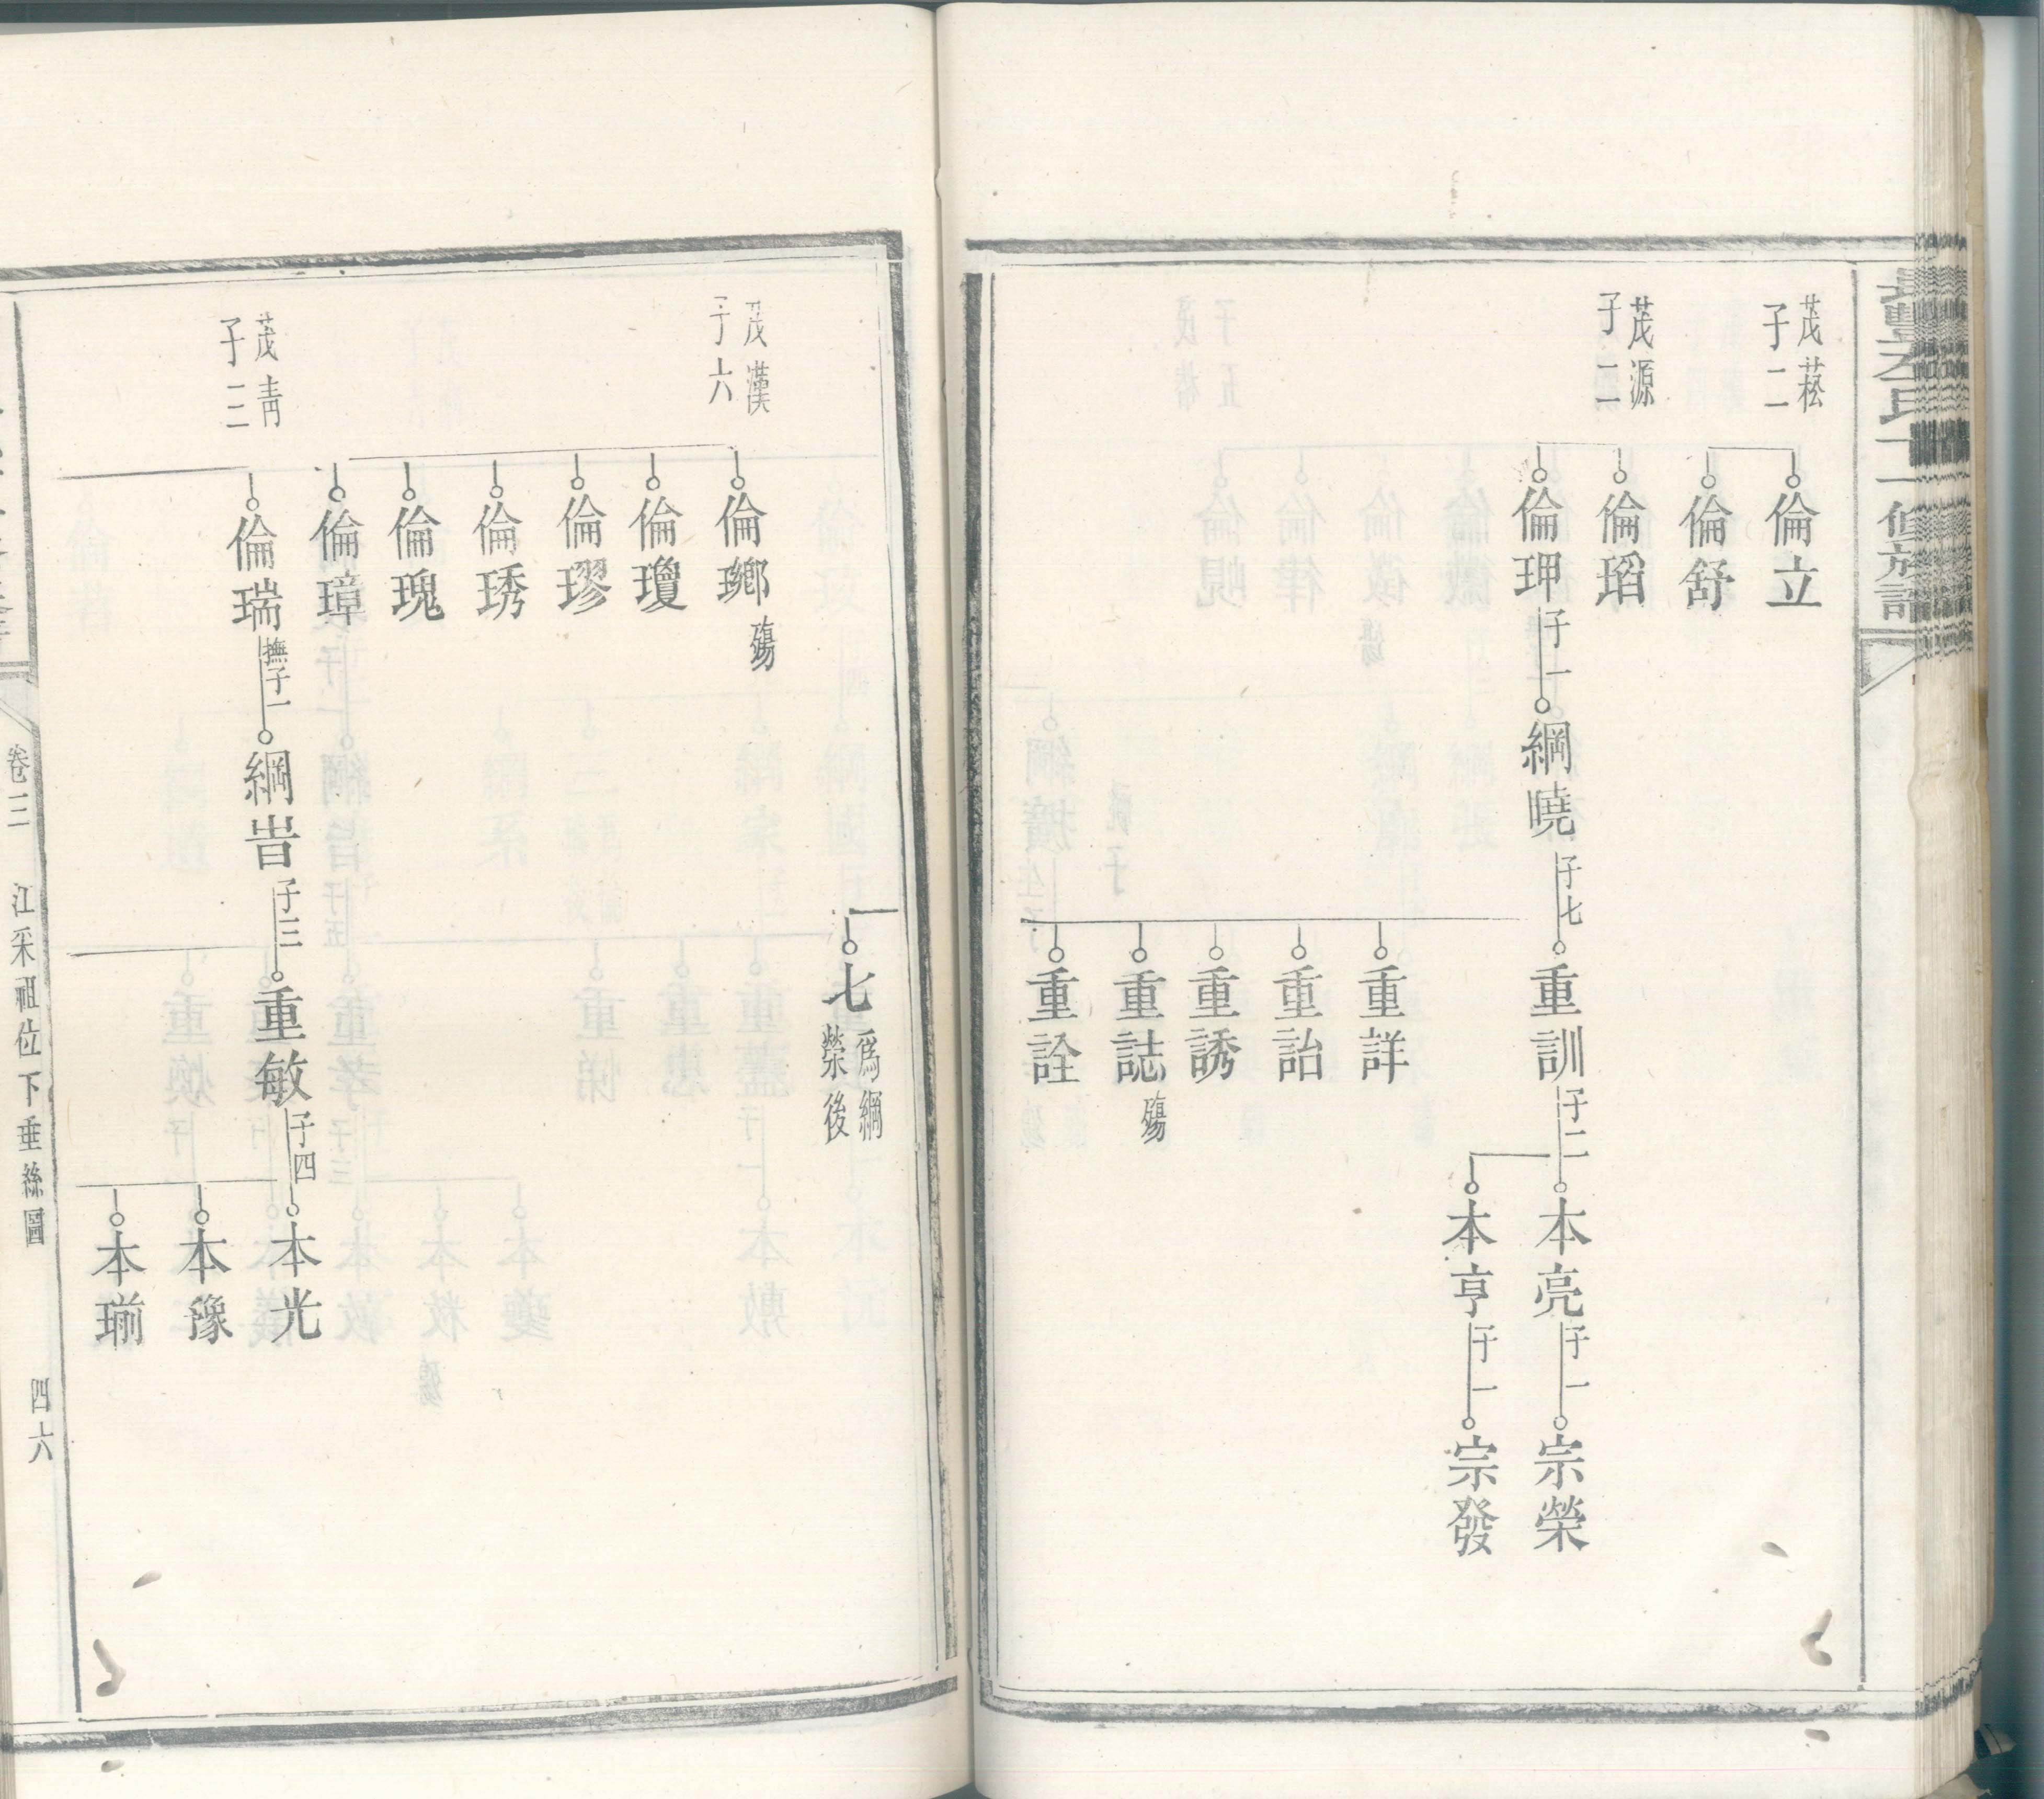 氏
修族譜
茂菘
子二
倫立
倫舒
茂源
子二
倫瑫
倫玾
子一
綱曉
子七
重訓
子二
本亮
子一
宗榮
本亨
子一
宗發
重詳
重詒
重誘
重誌
殤
重詮
七
爲綱
榮後
茂漢
子六
倫瑯
殤
倫瓊
倫璆
倫琇
倫瑰
倫璋
茂靑
子二
倫瑞
撫子一
綱旹
子三
重敏
子四
本光
本豫
本瑐
卷三
江采祖位下垂絲圖
四六